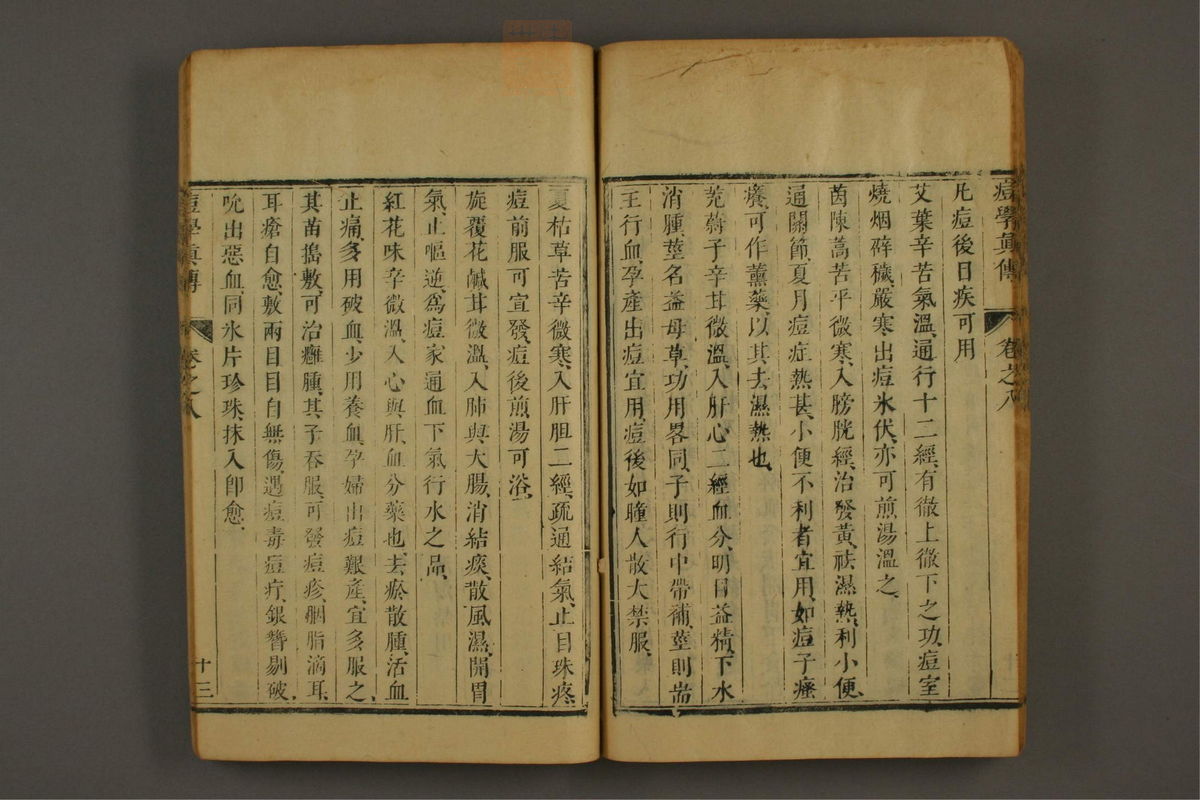 痘學眞傳　卷之八
凡痘後目疾可用
艾葉辛苦氣溫、通行十二經、有徹上徹下之功、痘室
燒烟辟穢、嚴寒出痘氷伏、亦可煎湯溫之、
茵陳蒿苦平微寒、入膀胱經、治發黃、祛濕熱、利小便、
通關節、夏月痘症熱甚、小便不利者宜用、如痘子癢
癢、可作薰藥、以其去濕熱也、
茺蔚子辛甘微溫、入肝心二經血分、明目益精、下水
消腫、莖名益母草、功用畧同、子則行中帶補、莖則耑
主行血、孕產出痘宜用、痘後如瞳人散大禁服、
夏枯草苦辛微寒、入肝胆二經、疏通結氣、止目珠疼
痘前服可宣發、痘後煎湯可浴、
旋覆花鹹甘微溫、入肺與大腸、消結痰、散風濕、開胃
氣、止嘔逆、爲痘家通血下氣行水之品、
紅花味辛微溫、入心與肝、血分藥也、去瘀散腫、活血
止痛、多用破血、少用養血、孕婦出痘艱產、宜多服之、
其苗搗敷、可治癰腫、其子吞服、可發痘疹、胭脂滴耳、
耳瘡自愈、敷兩目、目自無傷、遇痘毒痘疔、銀簪剔破、
吮出惡血、同氷片珍珠、抹入卽愈、
痘學眞傳　卷之八　十三